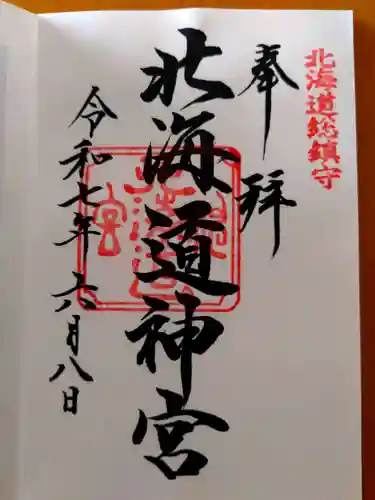 北海道総鎮守
奉拝
北海道神宮
令和七年六月八日